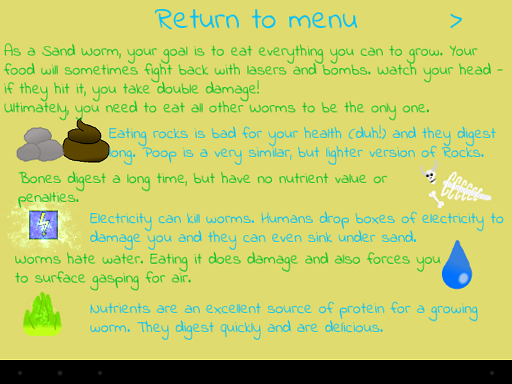 Return to menu >
As a Sand Worm, your goal is to eat everything you can to grow. Your
food will sometimes fight back with lasers and bombs. Watch your head -
if they hit it, you take double damage!
Ultimately, you need to eat all other worms to be the only one.
Eating rocks is bad for your health (duh!) and they digest
long. Poop is a very similar, but lighter version of Rocks.
Bones digest a long time, but have no nutrient value or
penalties.
Electricity can kill worms. Humans drop boxes of electricity to
damage you and they can even sink under sand.
Worms hate water. Eating it does damage and also forces you
to surface gasping for air.
Nutrients are an excellent source of protein for a growing
worm. They digest quickly and are delicious.